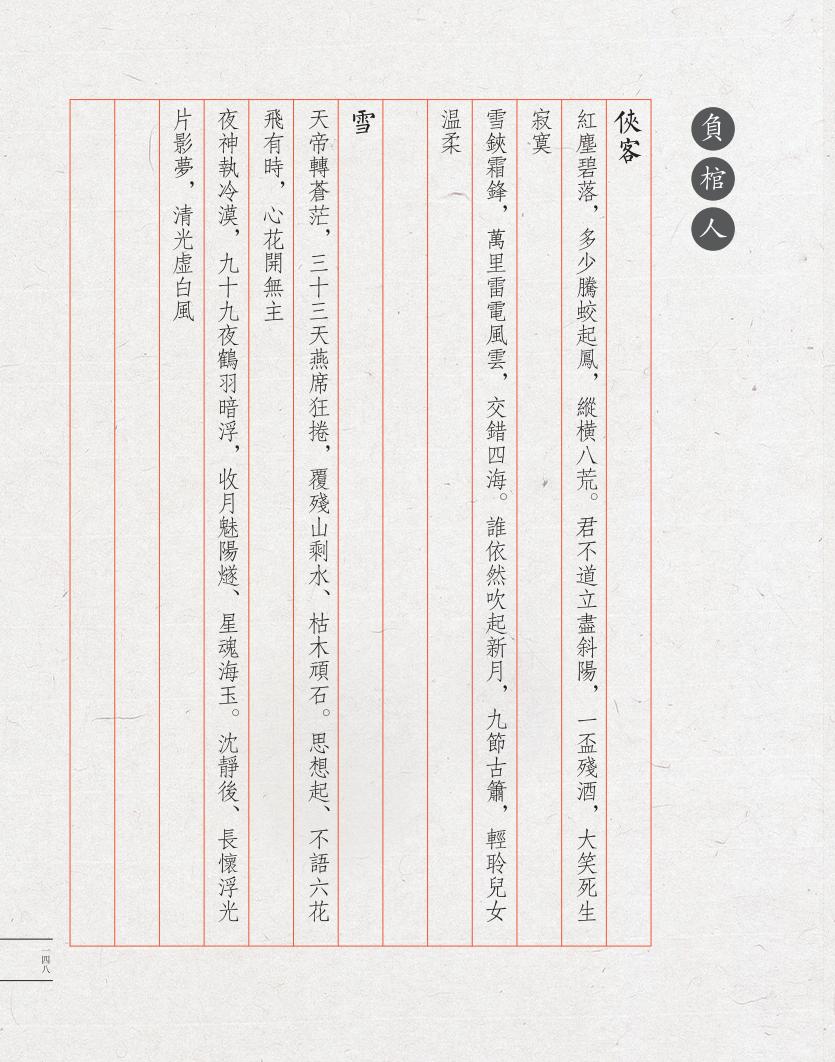 負棺人
俠客
紅塵碧落，多少騰蛟起鳳，縱橫八荒。君不道立盡斜陽，一盃殘酒，大笑死生
寂寞
雪鋏霜鋒，萬里雷電風雲，交錯四海。誰依然吹起新月，九節古簫，輕聆兒女
温柔
雪
天帝轉蒼茫，三十三天燕席狂捲，覆殘山剩水、枯木頑石。思想起、不語六花
飛有時，心花開無主
夜神執冷漠，九十九夜鶴羽暗浮，收月魅陽燧、星魂海玉。沈靜後、長懷浮光
片影夢，清光虛白風
一四八